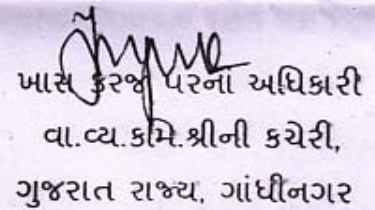 ખાસ ફરજ પરના અધિકારી
વા.વ્ય.કમિ.શ્રીની કચેરી,
ગુજરાત રાજ્ય, ગાંધીનગર